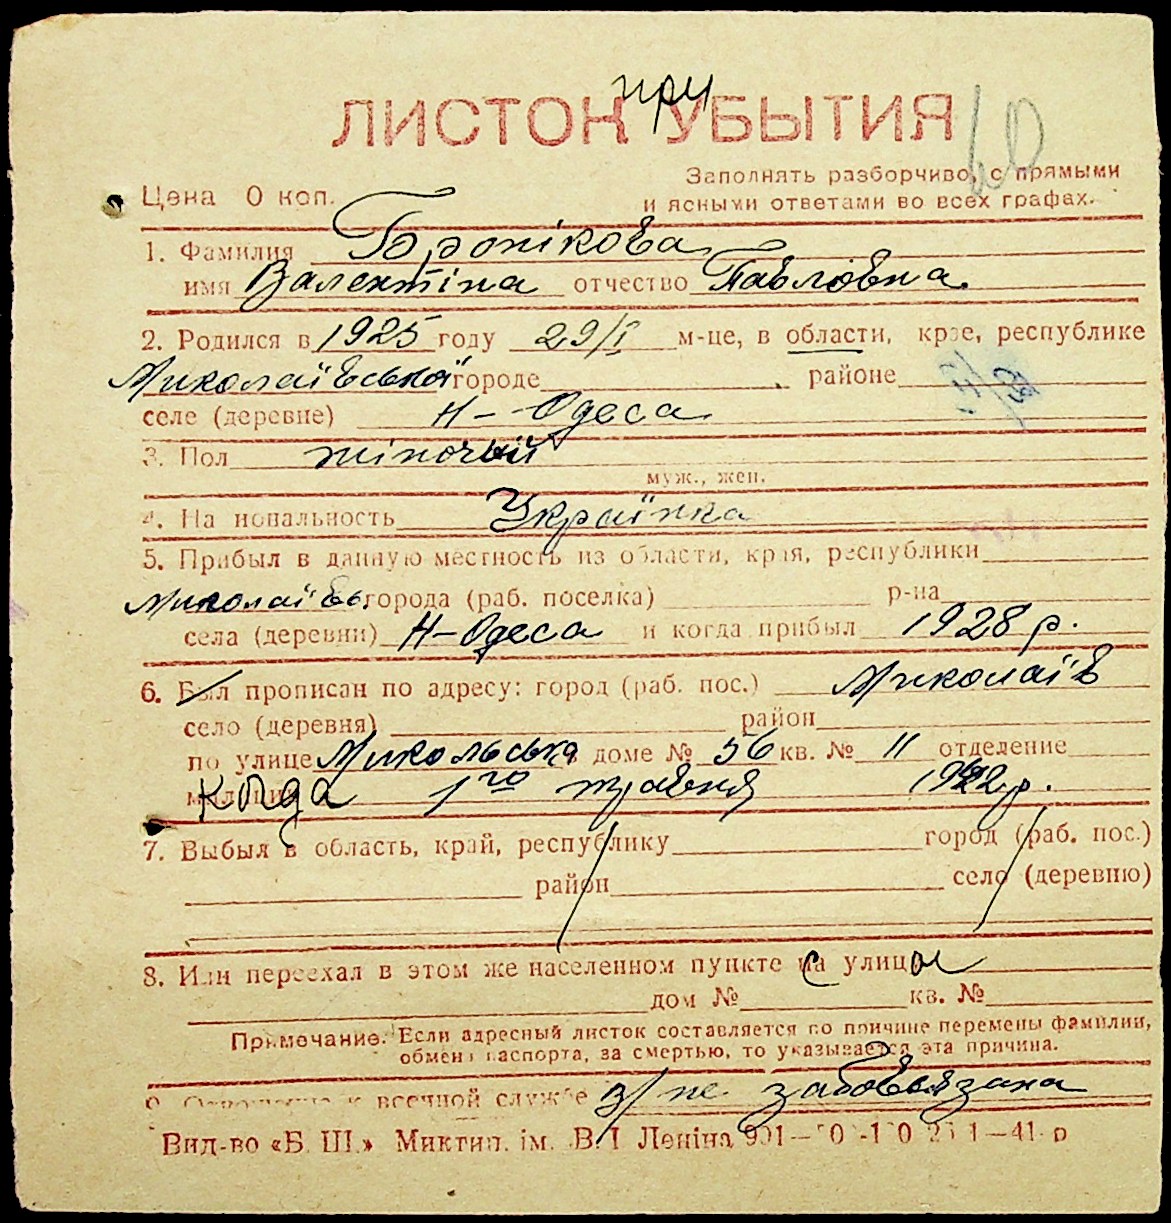 при
ЛИСТОК УБЫТИЯ
Заполнять разборчиво, с прямыми
Цена 0 коп.
и ясными ответами во всех графах.
1. Фамилия Боронікова
имя Валентіна отчество Павлівна
2. Родился в 1925 году 29/I м-це, в области, крае, республике
Миколаївській городе районе
селе (деревне) Н-Одеса
3. Пол жіночий
муж., жен.
4. На иональность Українка
5. Прибыл в данную местность из области, края, республики
Миколаївс. города (раб. поселка) р-на
села (деревни) Н-Одеса и когда прибыл 1928 р.
6. Был прописан по адресу: город (раб. пос.) Миколаїв
село (деревня) район
по улице Микольська доме № 56 кв. № 11 отделение
когда 1го травня 1942 р.
7. Выбыл в область, край, республику город (раб. пос.)
район село (деревню)
8. Или переехал в этом же населенном пункте с улицы
дом № кв. №
Примечание. Если адресный листок составляется по причине перемены фамилии,
обмена паспорта, за смертью, то указывается эта причина.
9. Отношение к военной службе в/ не забовьязана
Вид-во «Б. Ш.» Миктип. ім. В. І. Леніна